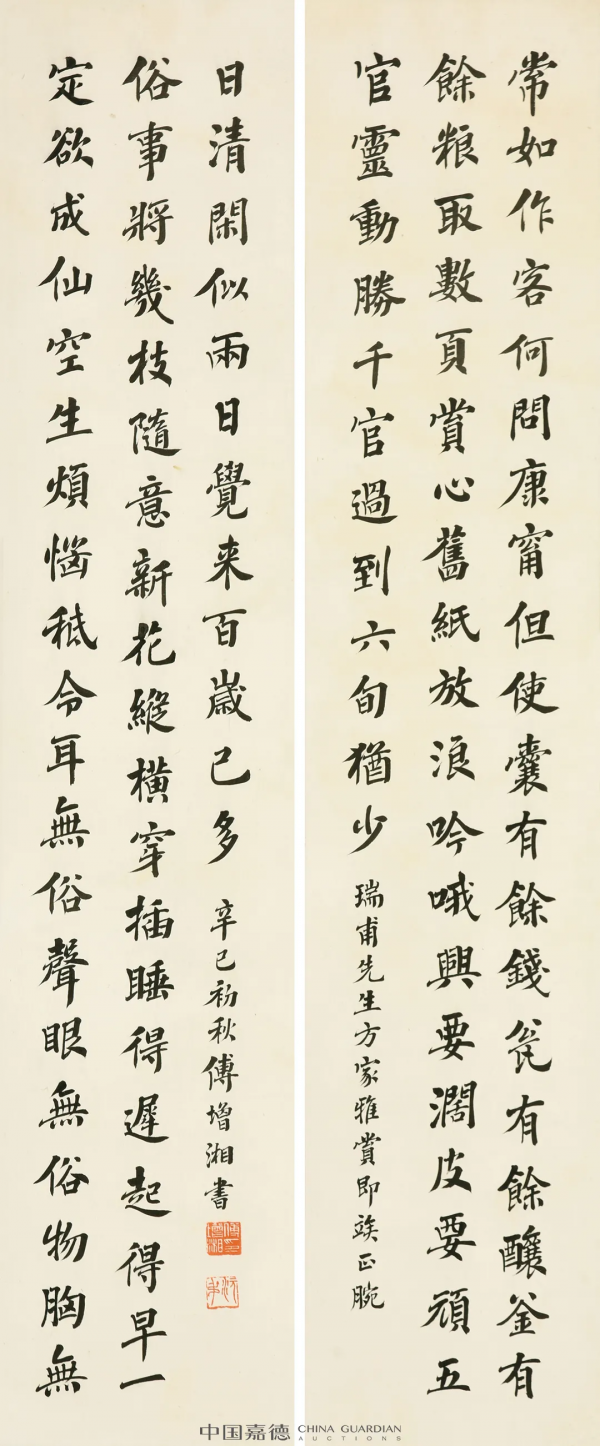 常如作客何問康甯但使囊有餘錢瓮有餘釀釜有
餘粮取數頁賞心舊紙放浪吟哦興要濶皮要頑五
官靈動勝千官過到六旬猶少
瑞甫先生方家雅賞即竢正腕
定欲成仙空生煩惱秪令耳無俗聲眼無俗物胸無
俗事將幾枝隨意新花縱橫穿插睡得遲起得早一
日清閑似兩日覺来百歲已多
辛巳初秋傅增湘書
傅印增湘
沅叔
中国嘉德 CHINA GUARDIAN AUCTIONS